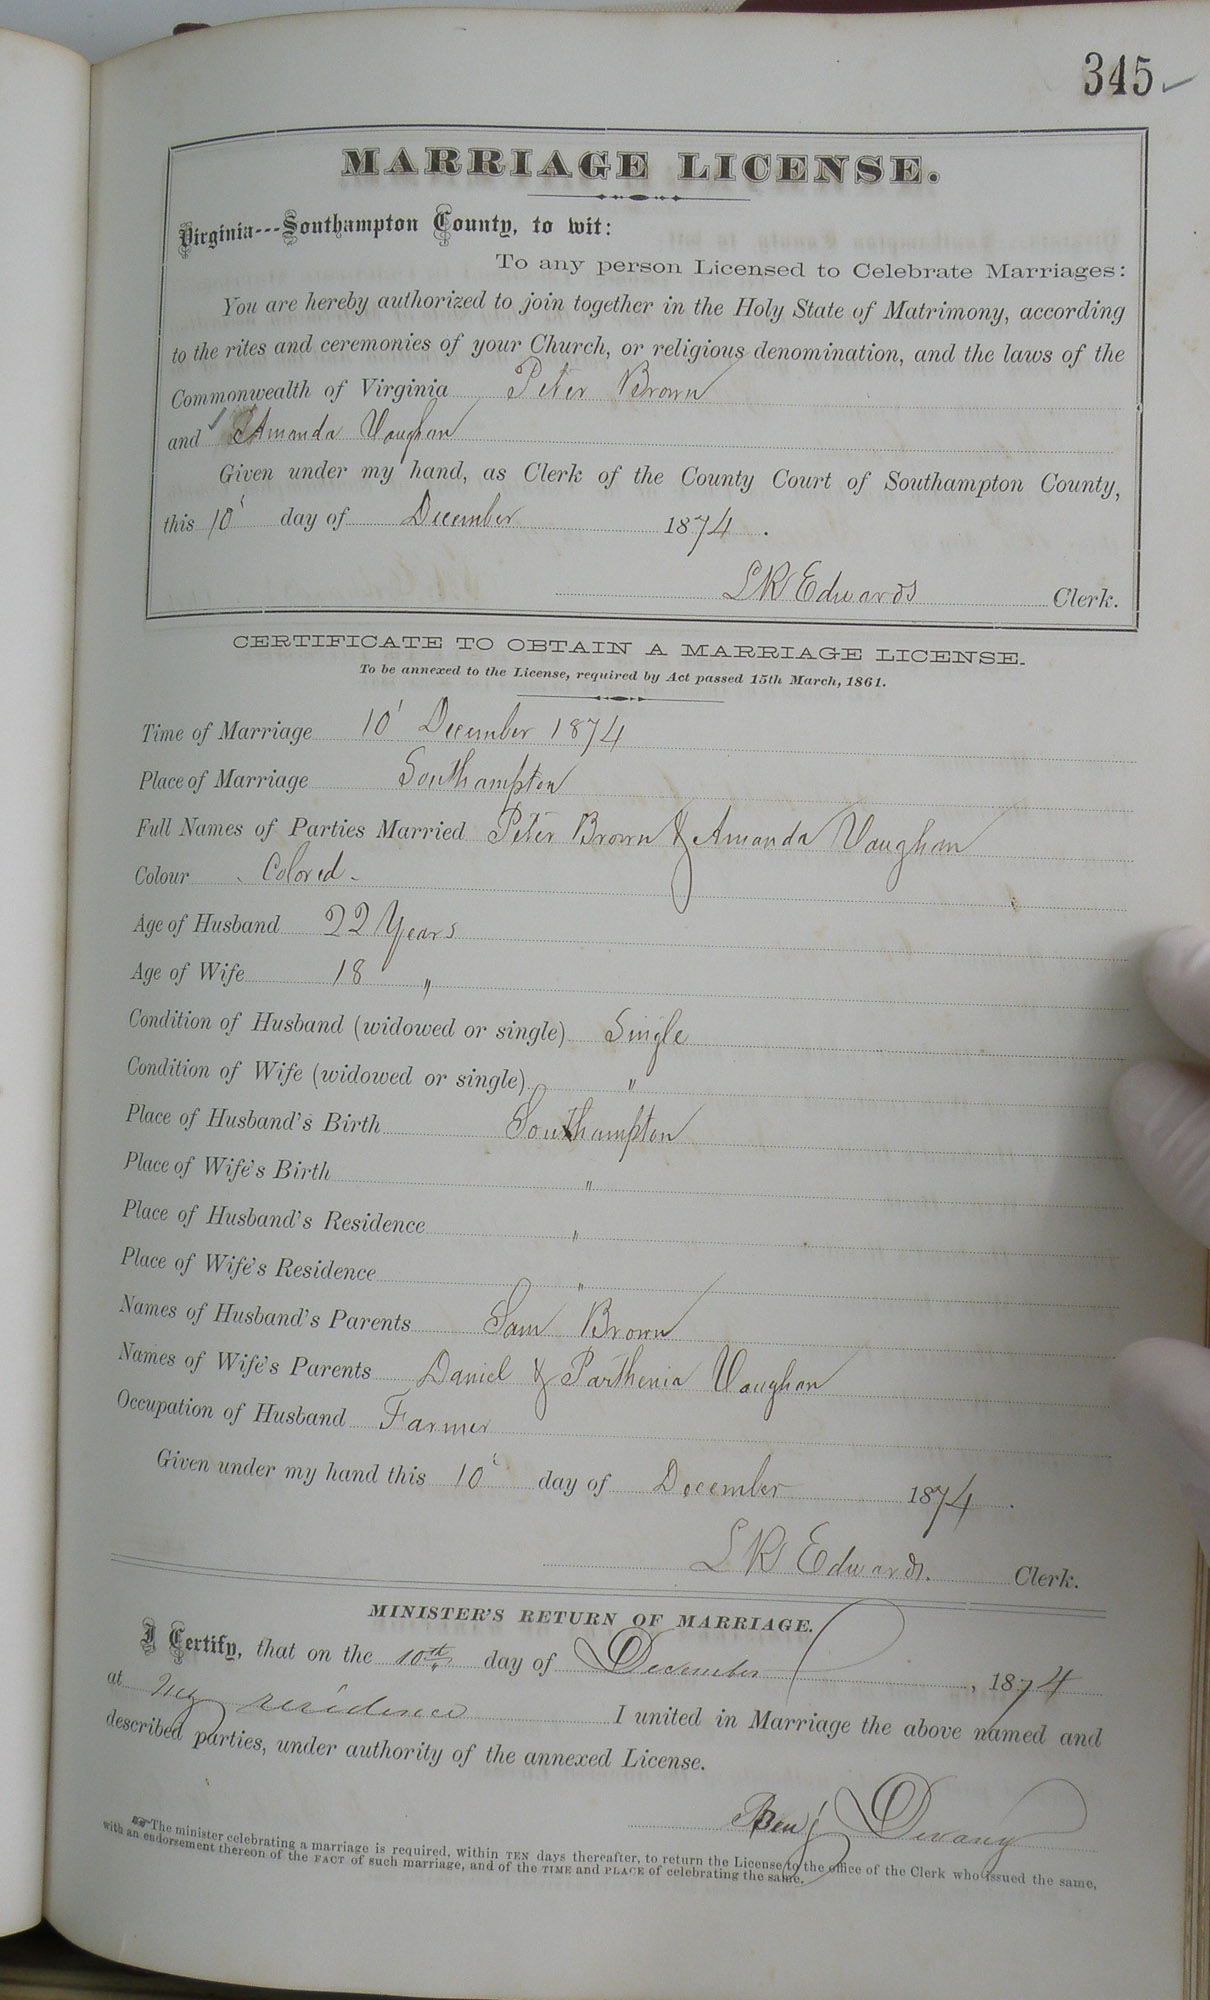 345
MARRIAGE LICENSE.
Virginia---Southampton County, to wit:
To any person Licensed to Celebrate Marriages:
You are hereby authorized to join together in the Holy State of Matrimony, according
to the rites and ceremonies of your Church, or religious denomination, and the laws of the
Commonwealth of Virginia Peter Brown
and Amanda Vaughan
Given under my hand, as Clerk of the County Court of Southampton County,
this 10' day of December 1874.
L R Edwards Clerk.
CERTIFICATE TO OBTAIN A MARRIAGE LICENSE.
To be annexed to the License, required by Act passed 15th March, 1861.
Time of Marriage 10' December 1874
Place of Marriage Southampton
Full Names of Parties Married Peter Brown & Amanda Vaughan
Colour Colored -
Age of Husband 22 Years
Age of Wife 18 "
Condition of Husband (widowed or single) Single
Condition of Wife (widowed or single) "
Place of Husband's Birth Southampton
Place of Wife's Birth "
Place of Husband's Residence "
Place of Wife's Residence "
Names of Husband's Parents Sam Brown
Names of Wife's Parents Daniel & Parthenia Vaughan
Occupation of Husband Farmer
Given under my hand this 10' day of December 1874.
L R Edwards. Clerk.
MINISTER'S RETURN OF MARRIAGE.
I Certify, that on the 10th day of December, 1874
at my residence I united in Marriage the above named and
described parties, under authority of the annexed License.
Benj Devany
The minister celebrating a marriage is required, within TEN days thereafter, to return the License to the office of the Clerk who issued the same,
with an endorsement thereon of the FACT of such marriage, and of the TIME and PLACE of celebrating the same.